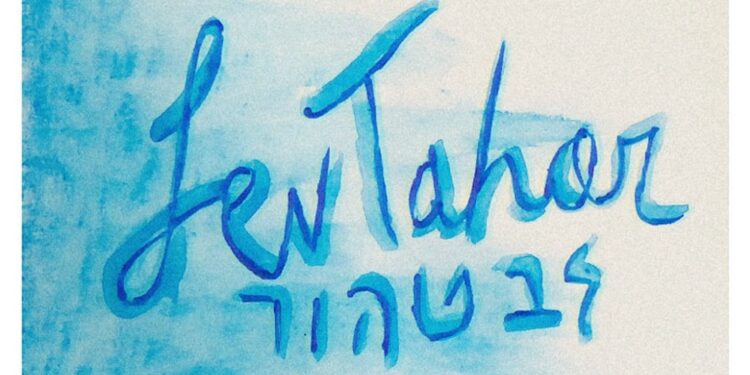 Lev Tahor
לב טהור